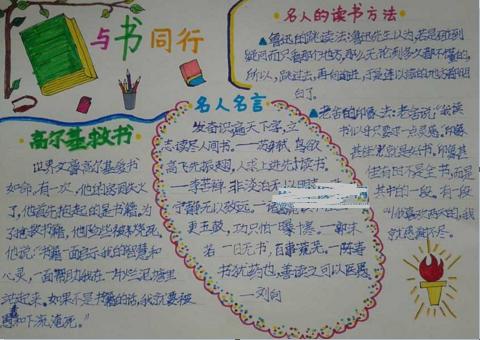 与书同行
名人的读书方法
▲鲁迅的跳读法:鲁迅先生认为,若是碰到
疑问而只看那个地方,那么无论到多久都不懂的,
所以,跳过去,再向前进,于是连以前的地方都明
白了。
▲老舍的印象法:老舍说:"我读
书似乎只要求一点灵感。"印象
甚佳就是好书,印象甚
佳有时不是全书,而是
其中的一段,有一段
叫我喜欢两天的,我
就感谢不尽。
高尔基救书
世界文豪高尔基爱书
如命,有一次,他的房间失火
了,他首先抱起的是书籍,为
了抢救书籍,他险些被烧死。
他说:"书籍一面启示我的智慧和
心灵,一面帮助我在一片烂泥塘里
站起来。如果不是书籍的话,我就要被
愚和下流淹死。"
名人名言
发奋识遍天下字,立
志读尽人间书。—苏轼 鸟欲
高飞先振翅,人求上进先读书。
—李苦禅 非淡泊无以明
宁静无以致远。—诸
更五鼓,功只怕一曝十寒。—郭沫
若 一日无书,百事荒芜。—陈寿
书犹药也,善读之可以医愚
—刘向